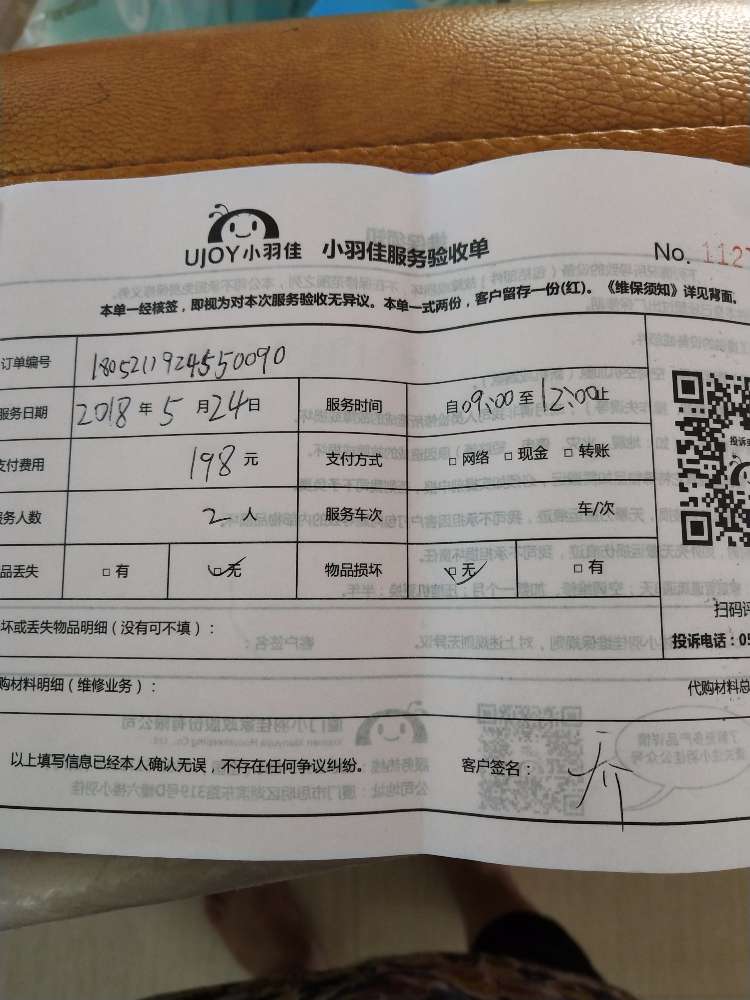 UJOY小羽佳 小羽佳服务验收单 No. 1127
本单一经核签，即视为对本次服务验收无异议。本单一式两份，客户留存一份(红)。《维保须知》详见背面。
订单编号 1805211924550090
服务日期 2018年5月24日 服务时间 自09:00至12:00止
支付费用 198元 支付方式 □网络 □现金 □转账
投诉
服务人数 2人 服务车次 车/次
品丢失 □有 □无 物品损坏 □无 □有
扫码评
坏或丢失物品明细（没有可不填）：
投诉电话：05
购材料明细（维修业务）： 代购材料总
以上填写信息已经本人确认无误，不存在任何争议纠纷。 客户签名：